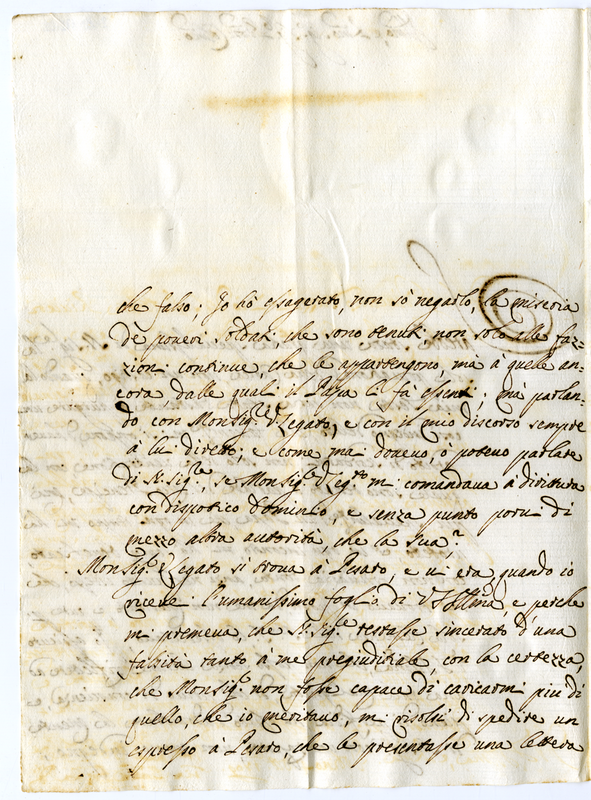 che falso; Io hò essagerato, non sò negarlo, la miseria
de poveri soldati, che sono tenuti non solo alle faz-
zioni continue, che le appartengono, mà à quelle an-
cora, dalle quali il Papa li fà esenti; mà parlan-
do con Monsig.re Legato, e con il mio discorso sempre
à lui diretto; e come mai dovevo, o potevo parlare
di N. Sig.re, se Monsig.re Leg.to mi comandava à dirittura
con dispotico Dominio, e senza punto porvi di
mezzo altra autorità, che la sua?
Monsig.re Legato si trova à Pesaro, e vi era quando io
ricevei l'umanissimo foglio di V.S. Ill.ma, e perche
mi premeva, che N. Sig.re restasse sincerato d'una
falsità tanto à me pregiudiziale con la certezza,
che Monsig.re non fosse capace di caricarmi più di
quello, che io meritavo, mi risolsi di spedire un
espresso à Pesaro, che le presentasse una lettera